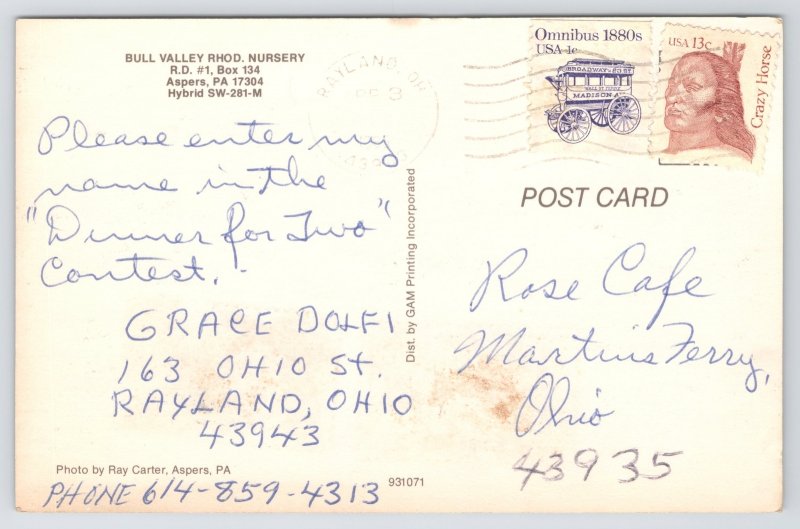 BULL VALLEY RHOD. NURSERY
R.D. #1, Box 134
Aspers, PA 17304
Hybrid SW-281-M
Please enter my
name in the
"Dinner for Two"
Contest.
GRACE DOLFI
163 OHIO St.
RAYLAND, OHIO
43943
Photo by Ray Carter, Aspers, PA
PHONE 614-859-4313
931071
Dist. by GAM Printing Incorporated
RAYLAND, OH
Omnibus 1880s
USA 1c
BROADWAY & 23 ST
MADISON AV
USA 13c
Crazy Horse
POST CARD
Rose Cafe
Martins Ferry,
Ohio
43935